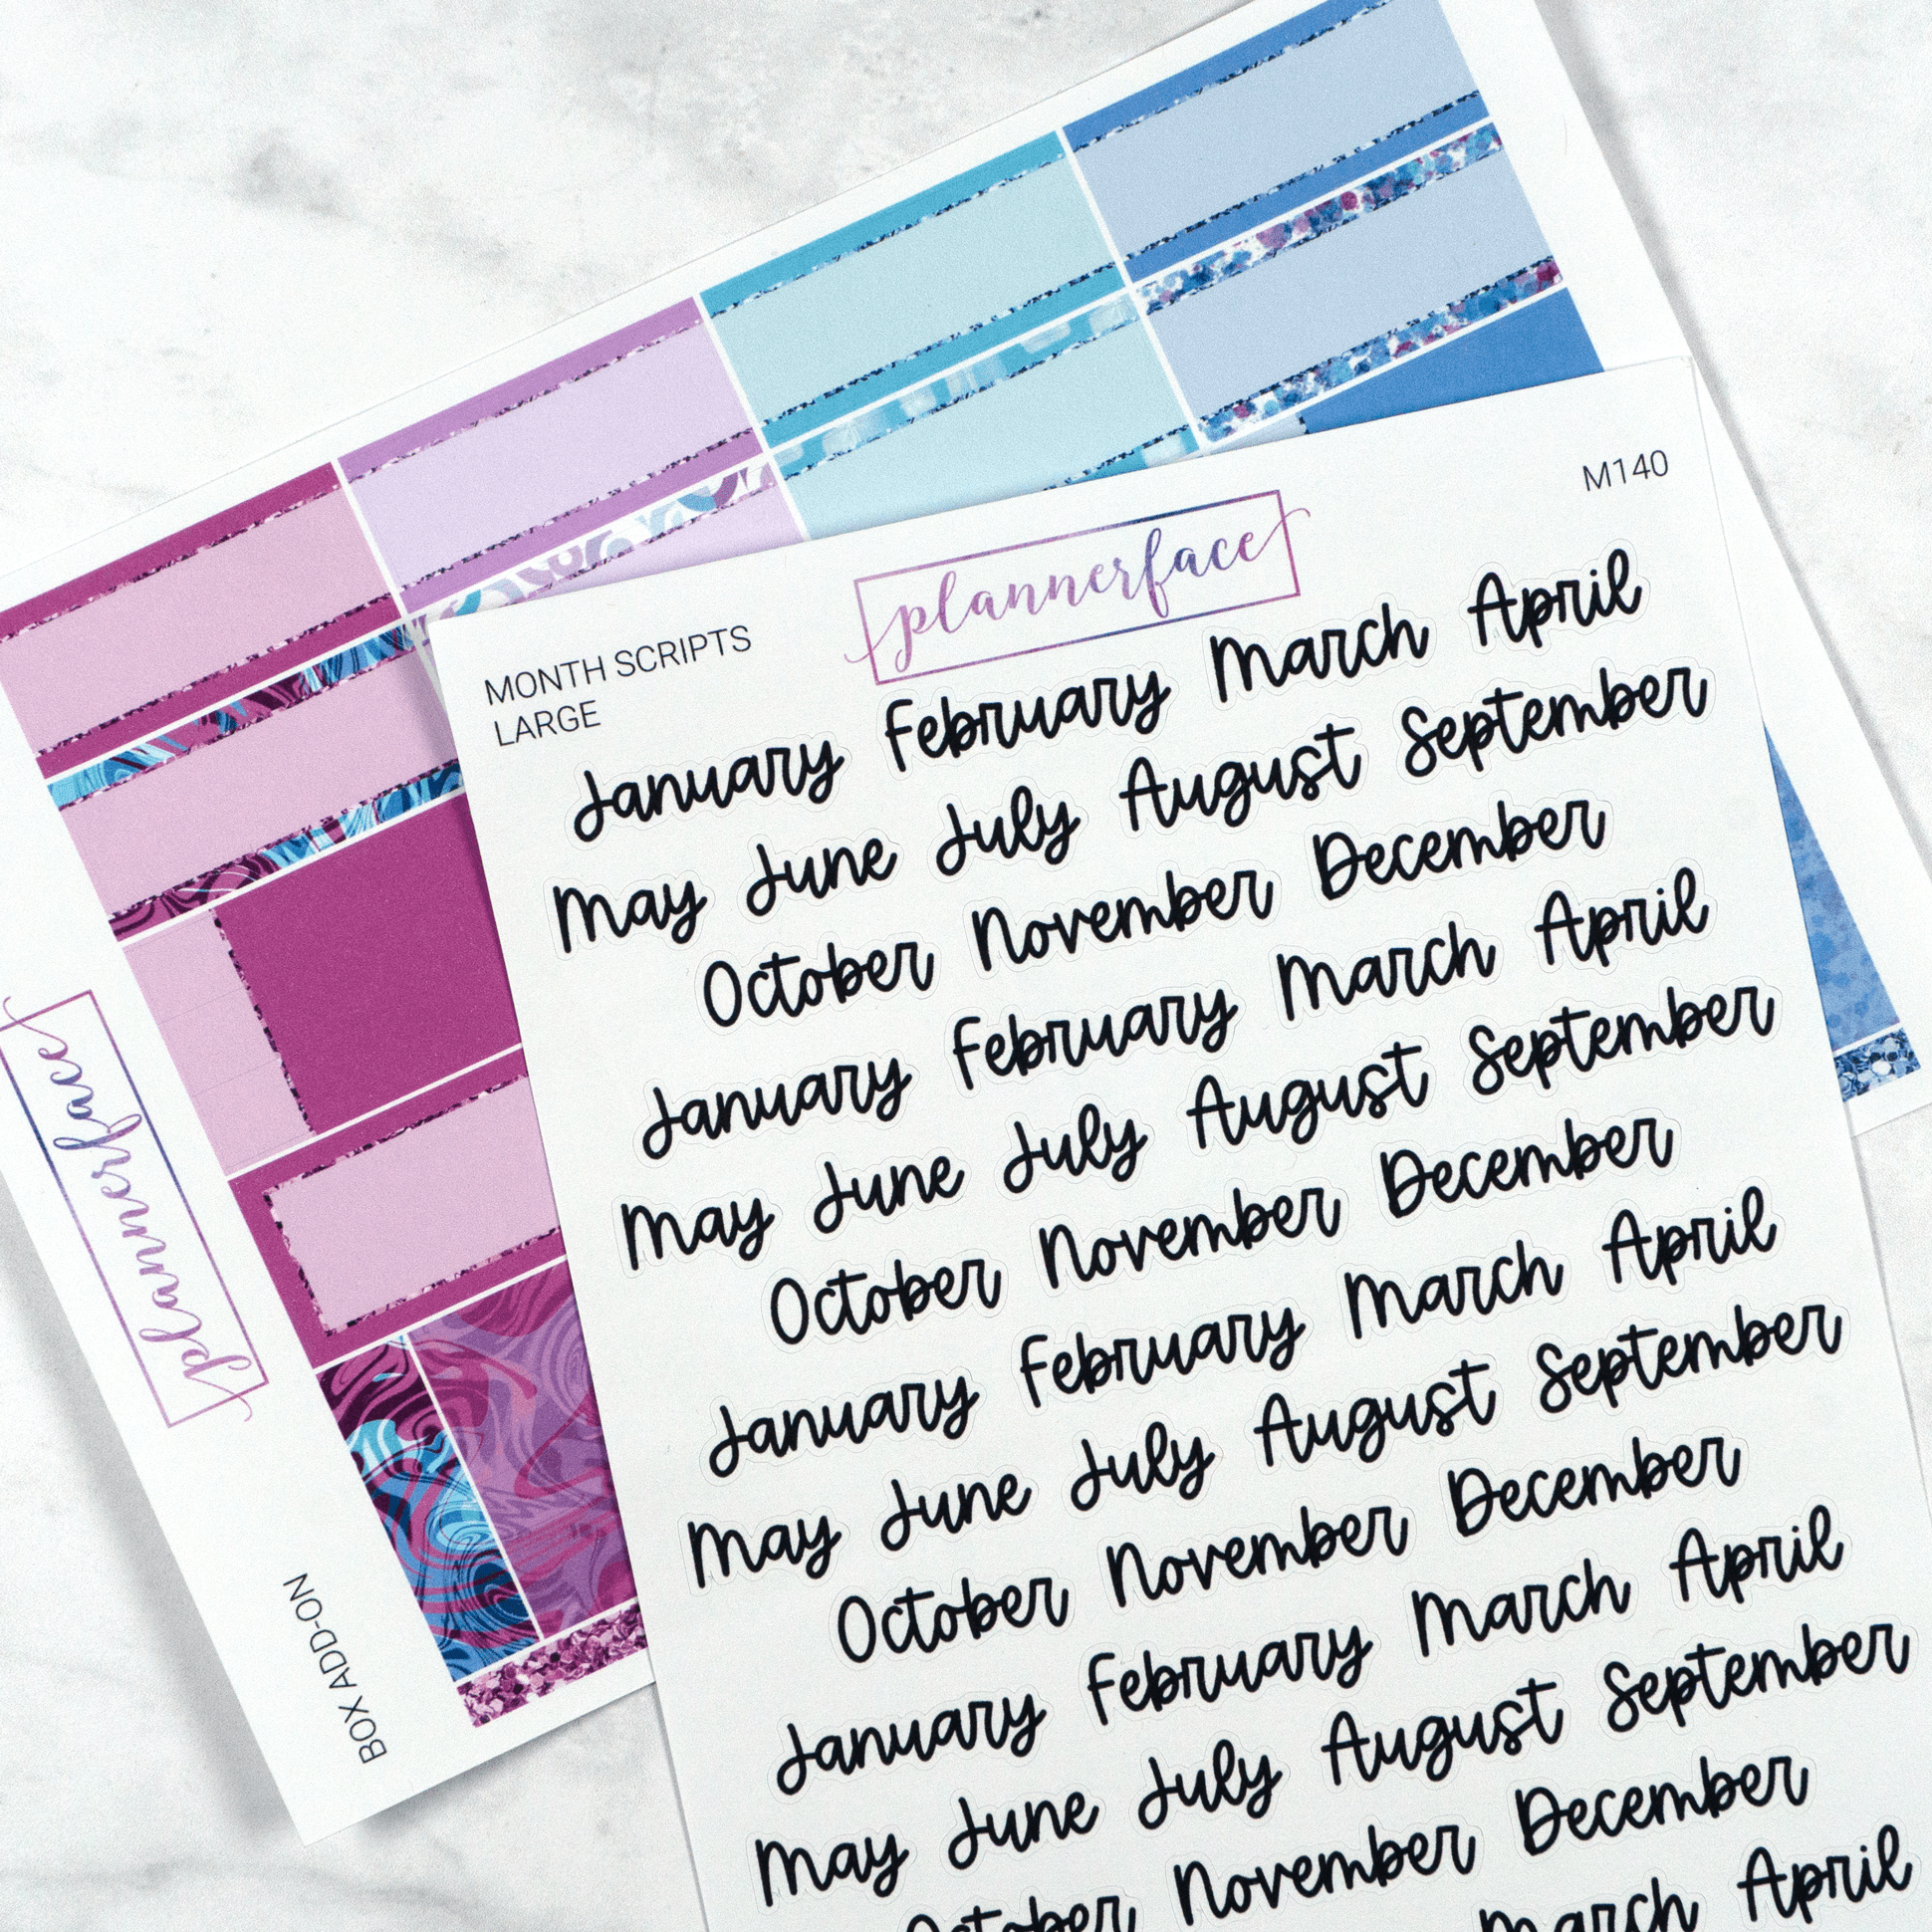 M140
plannerface
MONTH SCRIPTS
LARGE
January February March April
May June July August September
October November December
January February March April
May June July August September
October November December
January February March April
May June July August September
October November December
January February March April
May June July August September
October November December
March April
plannerface
BOX ADD-ON